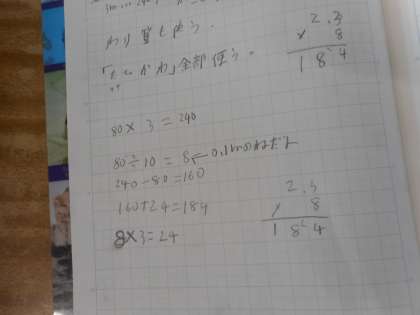 わり算も使う。
「たしかめ」全部使う。
2.3
× 8
18²4
80×3=240
80÷10=8←0.1mのねだん
240-80=160
160+24=184
8×3=24
2.3
× 8
18²4